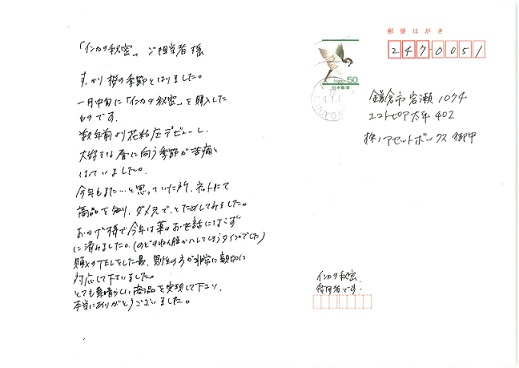 「インカの秘密」ご担当者様
すっかり桜の季節となりました。
一月中旬に「インカの秘密」を購入した
ものです。
数年前より花粉症デビューし、
大好きな春に向う季節が苦痛と
なっていました。
今年もまた…と思っていた所、ネットにて
商品を知り、ダメ元でとためしてみました。
おかげ様で今年は薬のお世話にならず
に済みました。(のどすわれ仮がハレてしまうタイプでした)
購入のTELをした際、男性の方が非常に親切に
対応して下さいました。
とても素晴らしい商品を実現して下さり、
本当にありがとうございました。
郵便はがき
2470051
50
鎌倉市岩瀬1074
エコトピア大平402
株)アセットボックス御中
インカの秘密
待用者です!